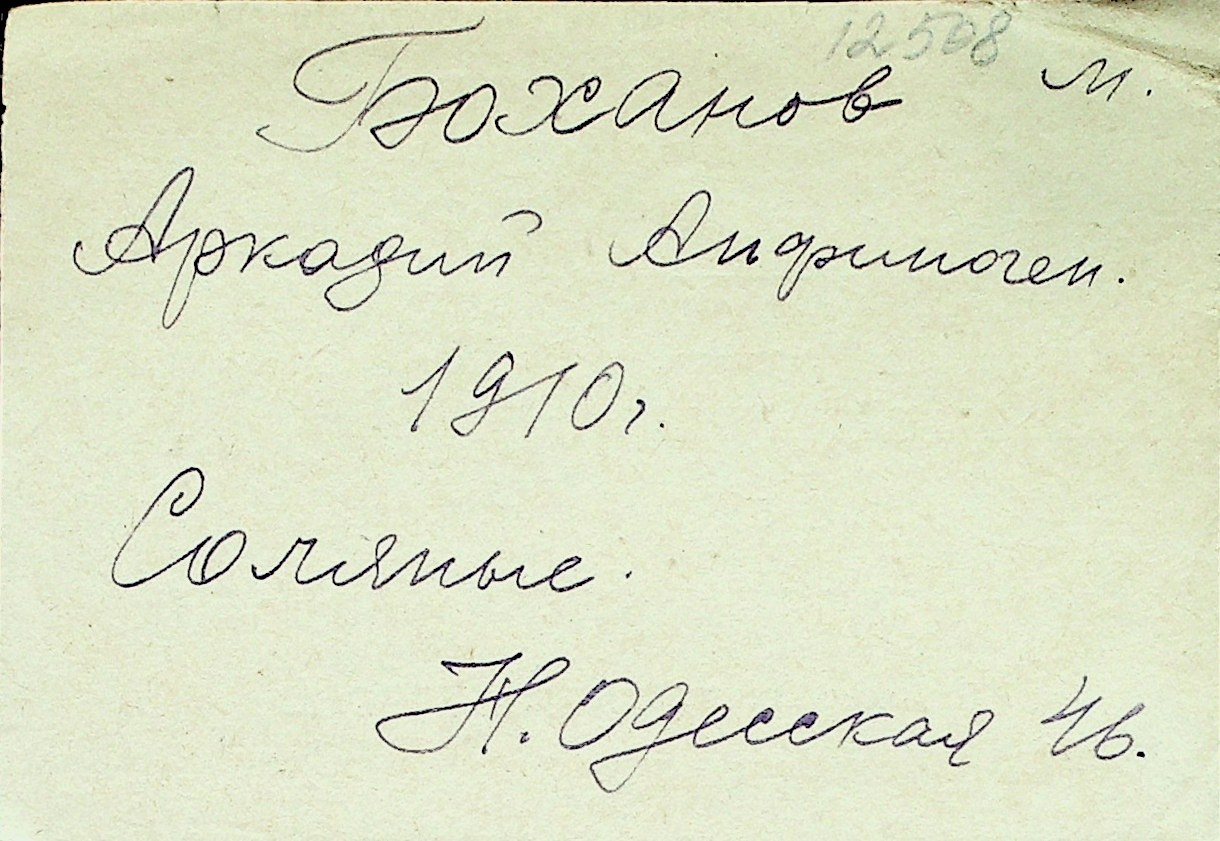 12508
Боханов м.
Аркадий Анфиноген.
1910г.
Соляные.
Н. Одесская 46.